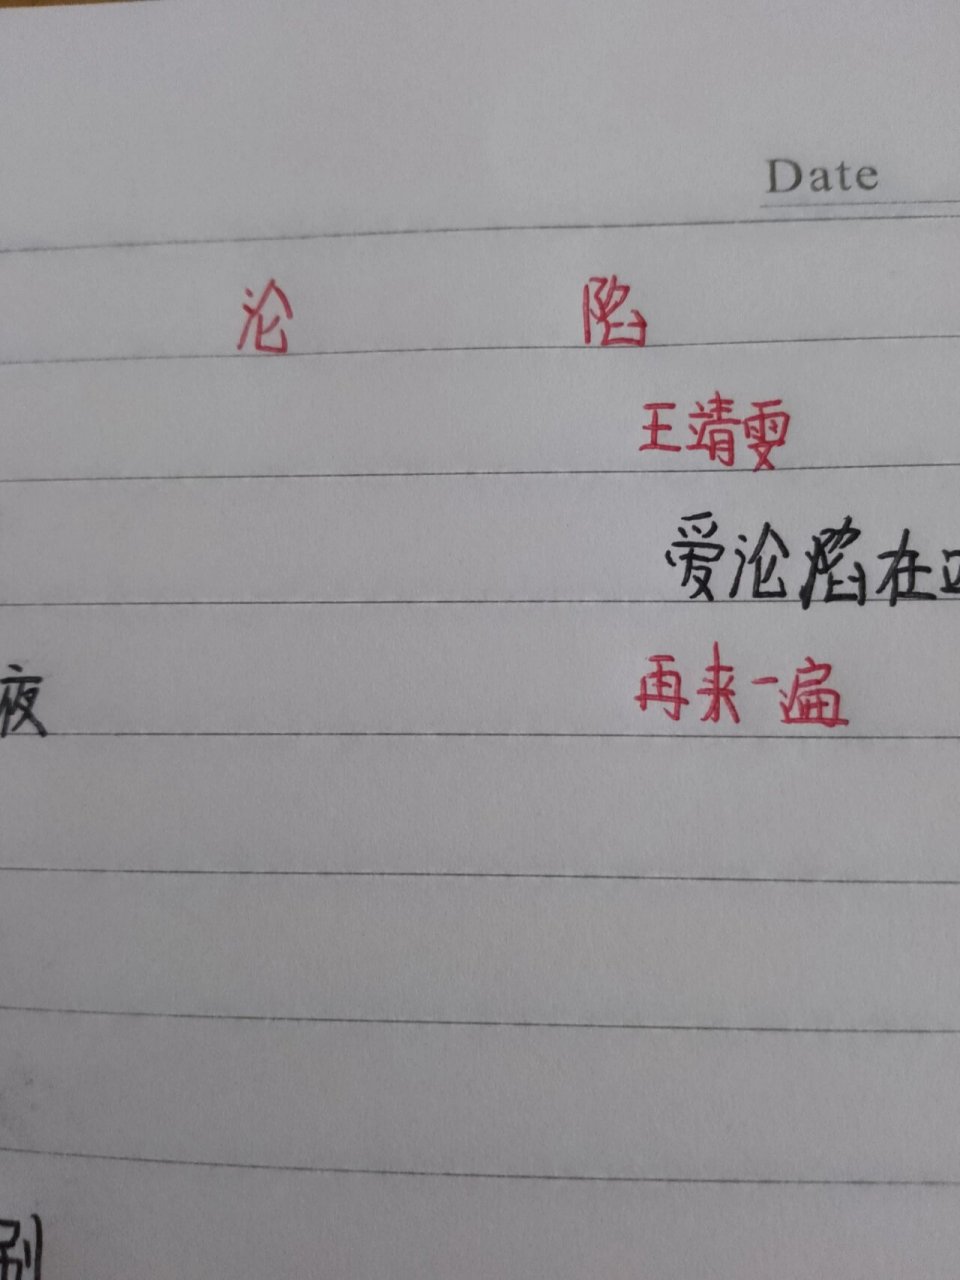 Date
沦 陷
王靖雯
爱沦陷在
夜 再来一遍
别